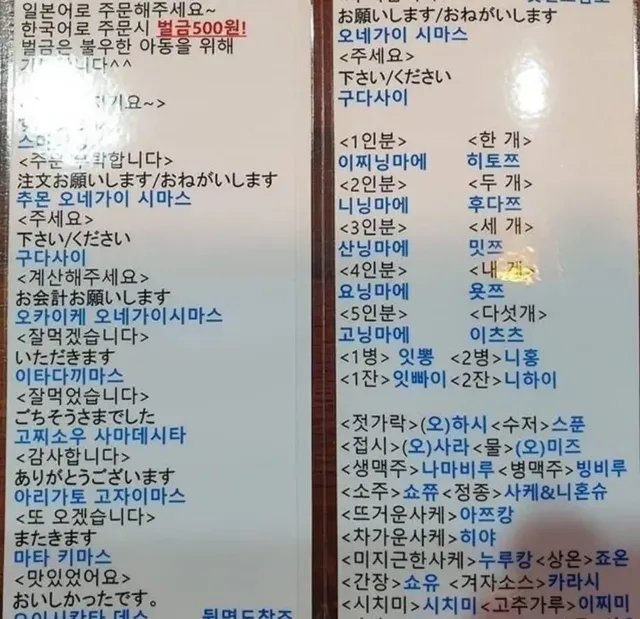 일본어로 주문해주세요~
한국어로 주문시 벌금500원!
벌금은 불우한 아동을 위해
^^
<주문 부탁합니다>
注文お願いします/おねがいします
추몬 오네가이 시마스
<주세요>
下さい/ください
구다사이
<계산해주세요>
お会計お願いします
오카이케 오네가이시마스
<잘먹겠습니다>
いただきます
이타다끼마스
<잘먹었습니다>
ごちそうさまでした
고찌소우 사마데시타
<감사합니다>
ありがとうございます
아리가토 고자이마스
<또 오겠습니다>
またきます
마타 키마스
<맛있었어요>
おいしかったです。
お願いします/おねがいします
오네가이 시마스
<주세요>
下さい/ください
구다사이
<1인분> <한 개>
이찌닝마에 히토쯔
<2인분> <두 개>
니닝마에 후다쯔
<3인분> <세 개>
산닝마에 밋쯔
<4인분> <네 개>
요닝마에 욧쯔
<5인분> <다섯개>
고닝마에 이츠츠
<1병> 잇뽕 <2병>니홍
<1잔>잇빠이<2잔>니하이
<젓가락>(오)하시<수저>스푼
<접시>(오)사라<물>(오)미즈
<생맥주>나마비루<병맥주>빙비루
<소주>쇼쮸<정종>사케&니혼슈
<뜨거운사케>아쯔캉
<차가운사케>히야
<미지근한사케>누루캉<상온>죠온
<간장>쇼유<겨자소스>카라시
<시치미>시치미<고추가루>이찌미